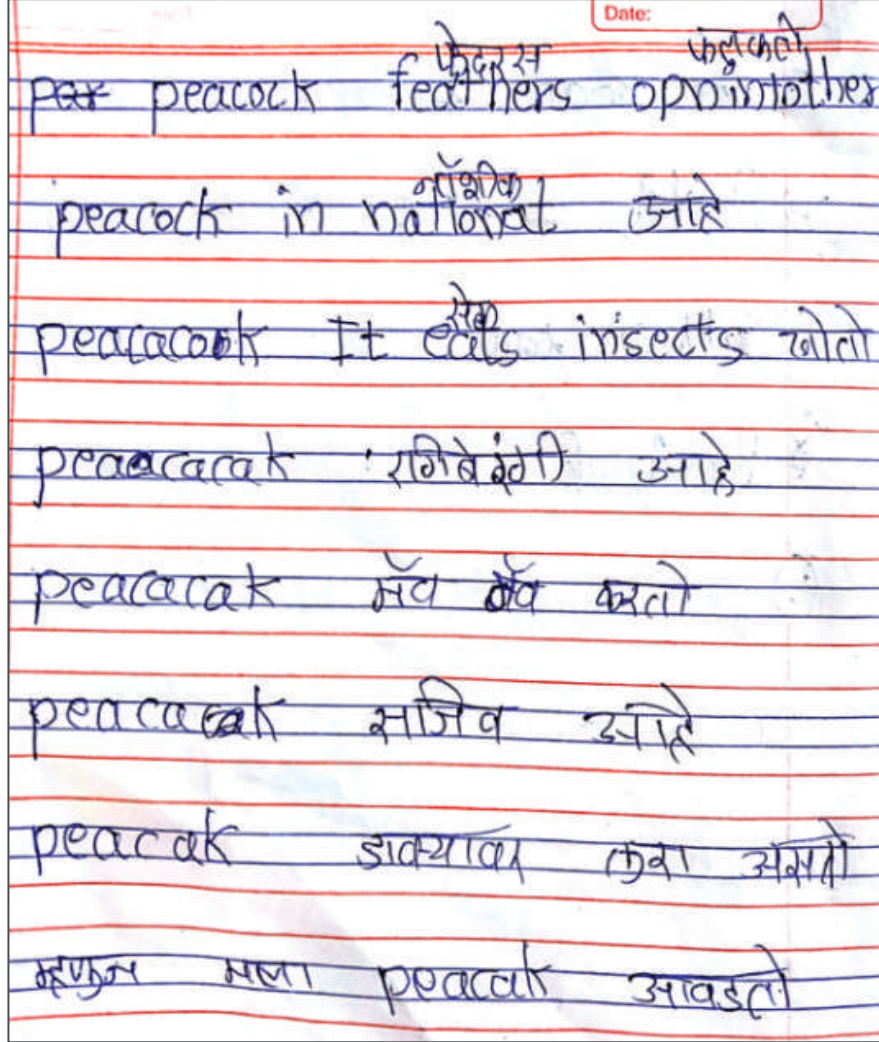 Date:
फेदरस फडकतो
pea peacock feathers opnintother
नॅशनल
peacock in national आहे
peacacook It eats insects खातो
peaacacak रंगिबेरंगी आहे
peacacak मॅव मॅव करतो
peacacak सजिव आहे
peacak डोक्यावर तुरा असतो
म्हणुन मला peacak आवडतो